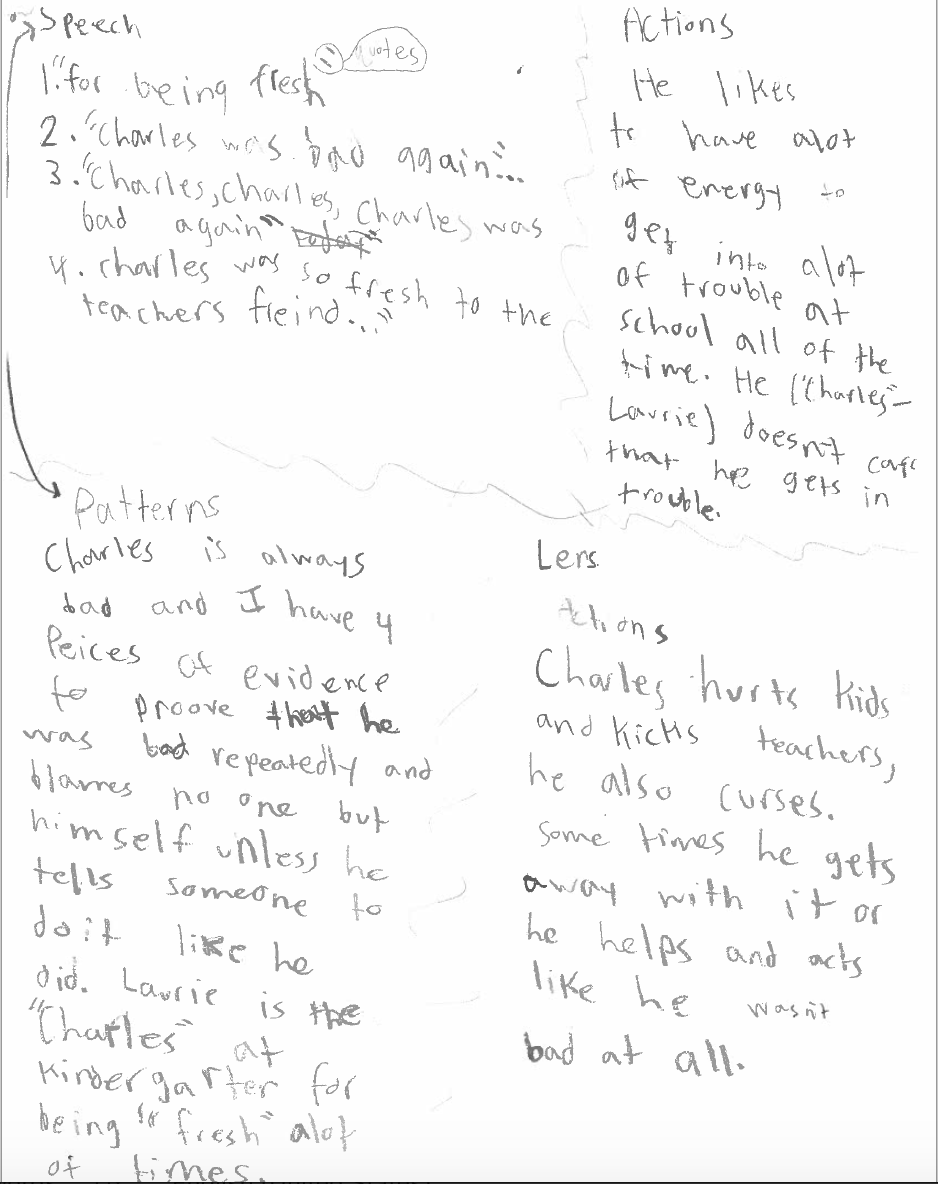 Speech
quotes
1."for being fresh
2. "Charles was bad again"...
3. "Charles, Charles, Charles was
bad again" today"
4. charles was so fresh to the
teachers freind..."
Actions
He likes
to have alot
of energy to
get into alot
of trouble at
school all of the
time. He ("Charles"-
Laurie) doesn't care
that he gets in
trouble.
Patterns
Charles is always
bad and I have 4
Peices of evidence
to proove that he
was bad repeatedly and
blames no one but
himself unless he
tells someone to
do it like he
did. Laurie is the
"Charles" at
Kindergarter for
being "fresh" alot
of times.
Lens
Actions
Charles hurts kids
and kicks teachers,
he also curses.
Some times he gets
away with it or
he helps and acts
like he wasn't
bad at all.